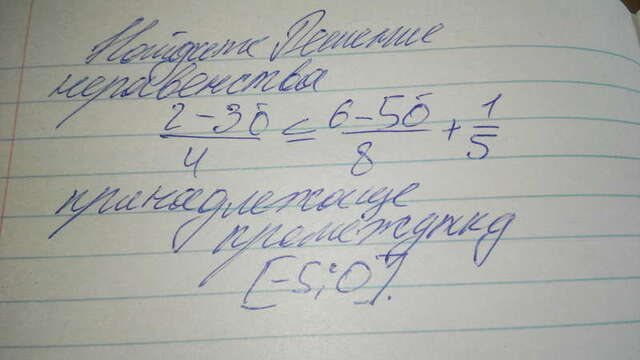 Найдите Решение
неравенства
2-3б/4 ≤ 6-5б/8 + 1/5
принадлежаще
промежутку
[-5;0].